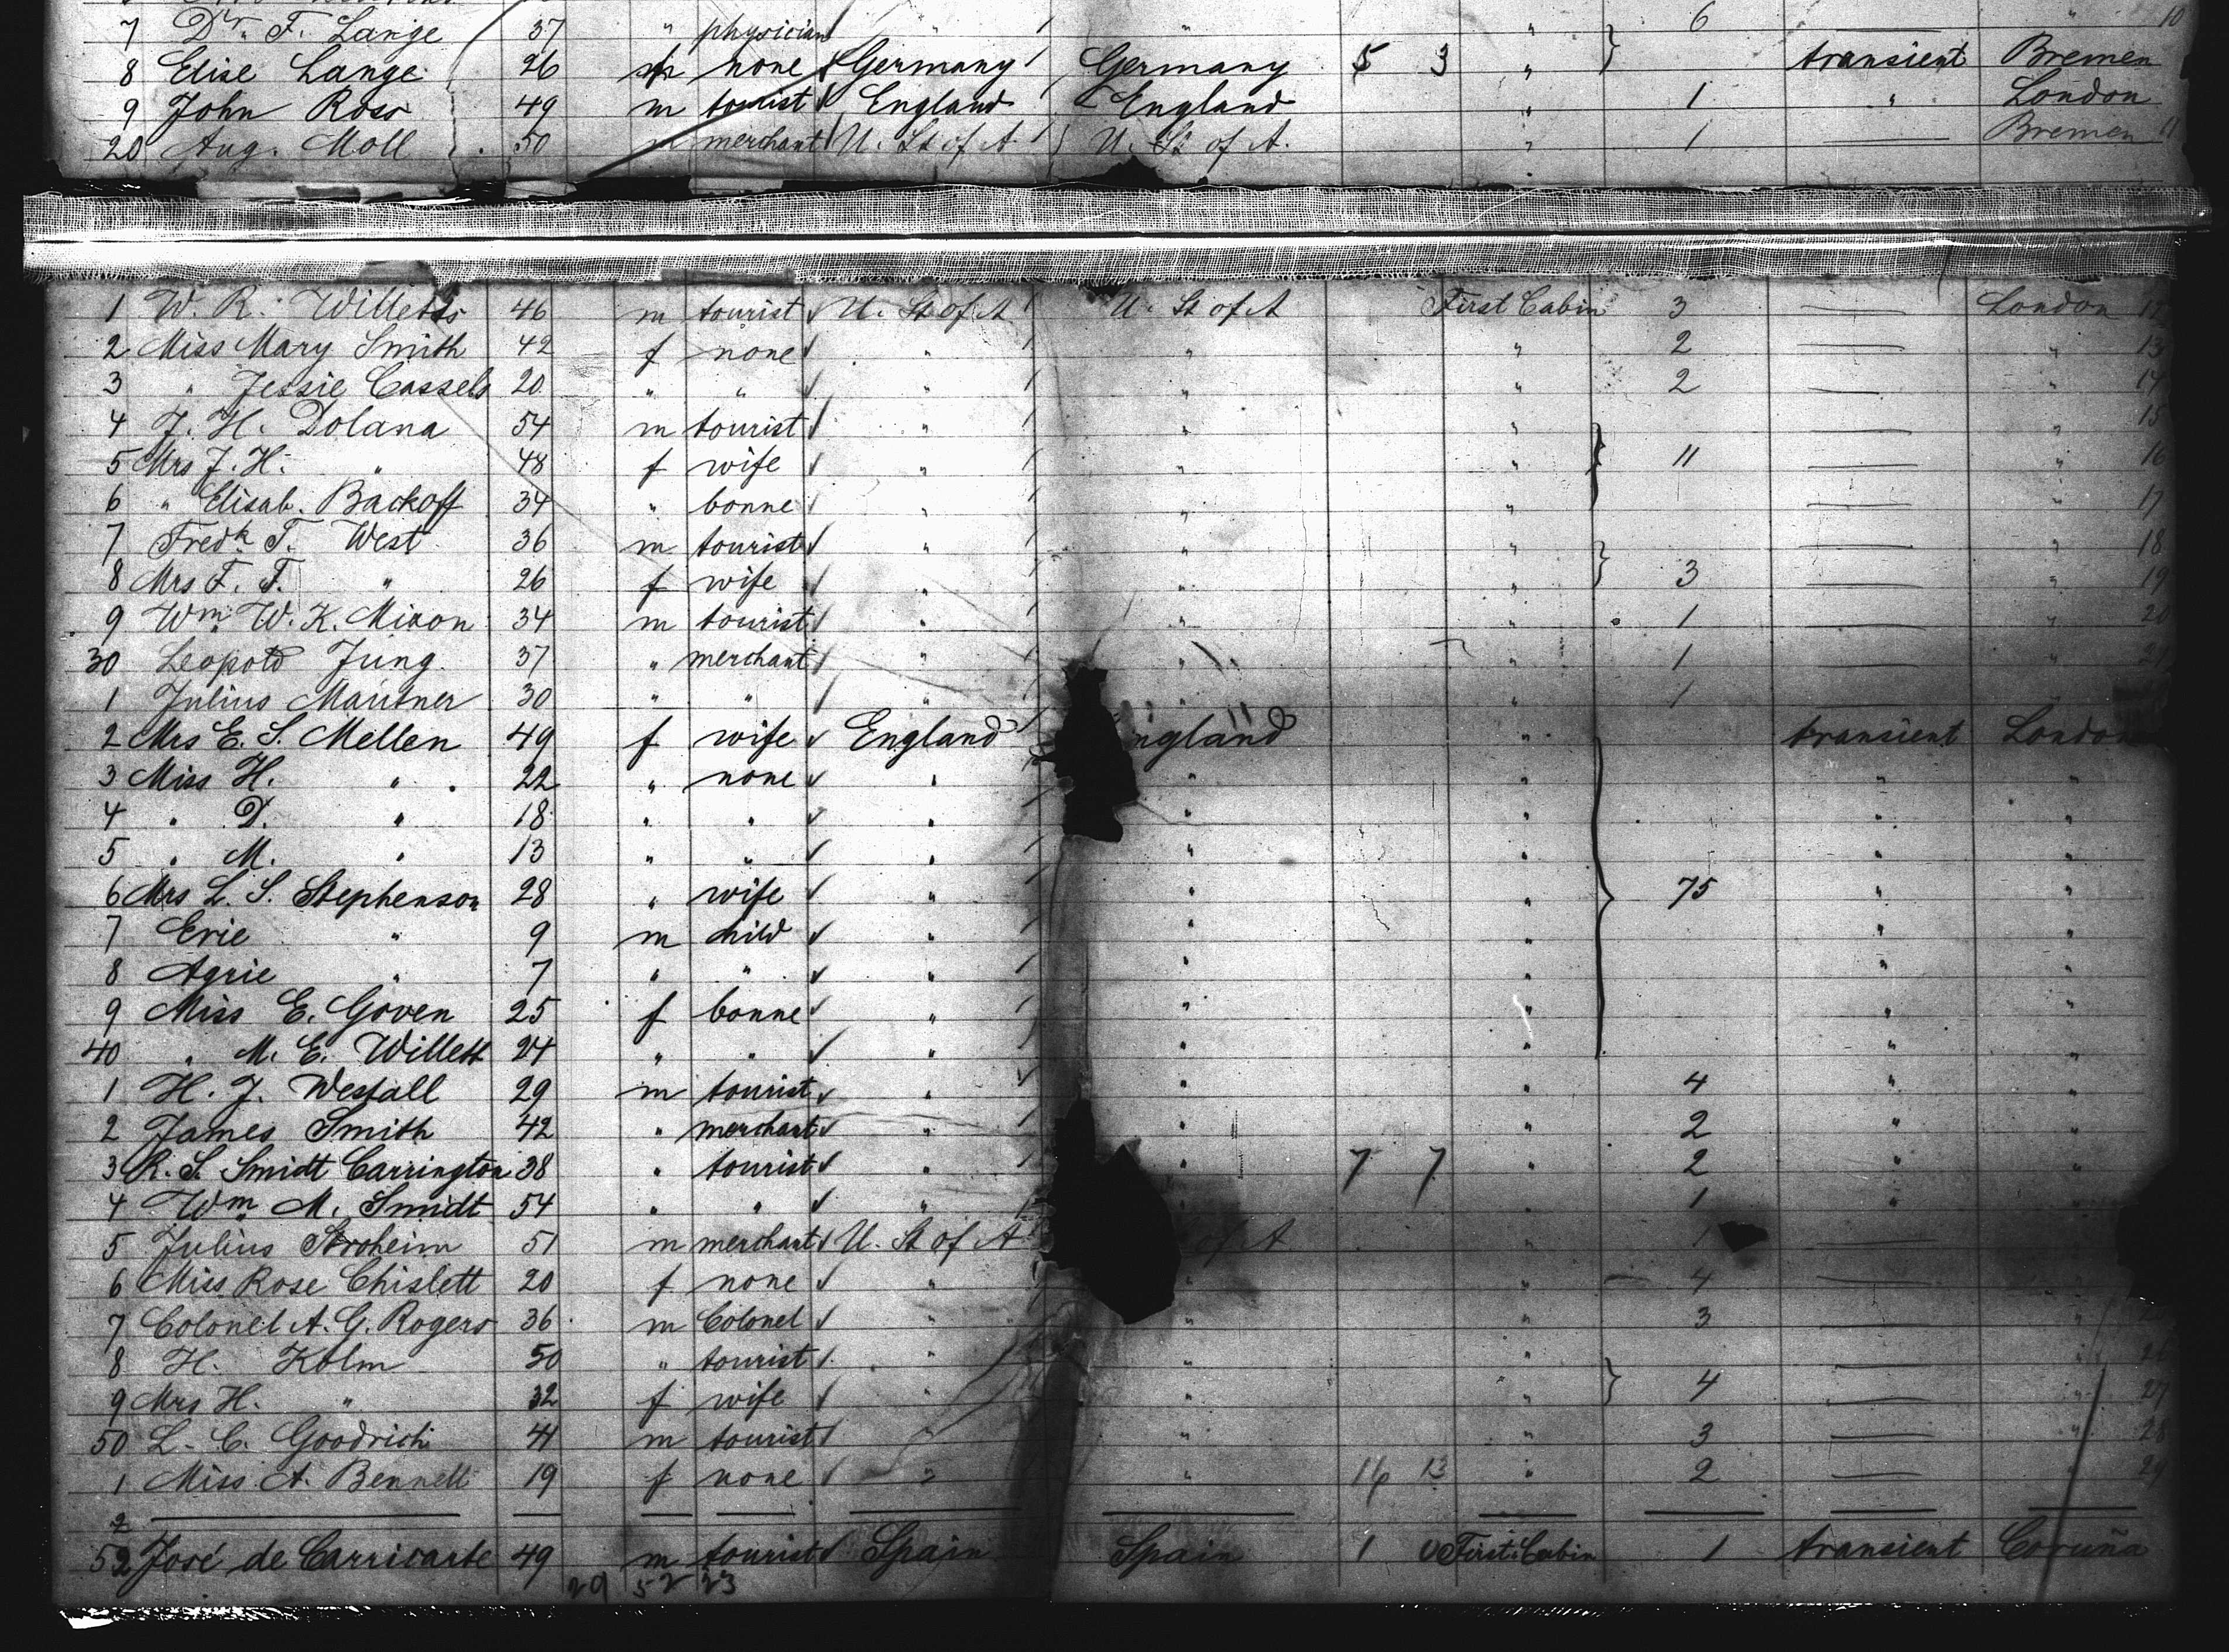 7 Dr. F. Lange 37 " physician " " " 6 " 10
8 Elise Lange 26 f none Germany Germany 5 3 " transient Bremen
9 John Ross 49 m tourist England England " 1 " London
20 Aug. Moll 50 m merchant U. St of A. U. St of A. " 1 — Bremen 11
1 W. R. Willetts 46 m tourist U. St of A U. St of A First Cabin 3 — London 12
2 Miss Mary Smith 42 f none " " " 2 — " 13
3 " Jessie Cassels 20 " " " " " 2 — " 14
4 J. H. Dolana 54 m tourist " " " — " 15
5 Mrs J. H. " 48 f wife " " " 11 — " 16
6 " Elisab. Backoff 34 " bonne " " " — " 17
7 Fredk T. West 36 m tourist " " " — " 18
8 Mrs F. T. " 26 f wife " " " 3 — " 19
9 Wm W. K. Mixon 34 m tourist " " " 1 — " 20
30 Leopold Jung 37 " merchant " " " 1 — " 21
1 Julius Mautner 30 " " " " " 1 —
2 Mrs E. S. Mellen 49 f wife England England " transient London
3 Miss H. " 22 " none " " " " "
4 " D. " 18 " " " " " " "
5 " M. " 13 " " " " " " "
6 Mrs L. S. Stephenson 28 " wife " " " 75 " "
7 Eric " 9 m child " " " " "
8 Agrie " 7 " " " " " " "
9 Miss E. Goven 25 f bonne " " " " "
40 " M. E. Willett 24 " " " " " " "
1 H. J. Westall 29 m tourist " " " 4 " "
2 James Smith 42 " merchant " " " 2 " "
3 R. S. Smidt Carrington 38 " tourist " " 7 7 " 2 " "
4 Wm M. Smidt 54 " " " " 1 " "
5 Julius Stroheim 51 m merchant U. St of A of A " 1 —
6 Miss Rose Chislett 20 f none " " " 4 — "
7 Colonel A. G. Rogers 36 m Colonel " " " 3 — "
8 H. Kolm 50 " tourist " " " — " 26
9 Mrs H. " 32 f wife " " " 4 — " 27
50 L. C. Goodrich 41 m tourist " " 3 — " 28
1 Miss A. Bennett 19 f none " " 16 13 " 2 — " 29
2
52 José de Carricarte 49 m tourist Spain Spain 1 0 First Cabin 1 transient Coruña
29 52 23